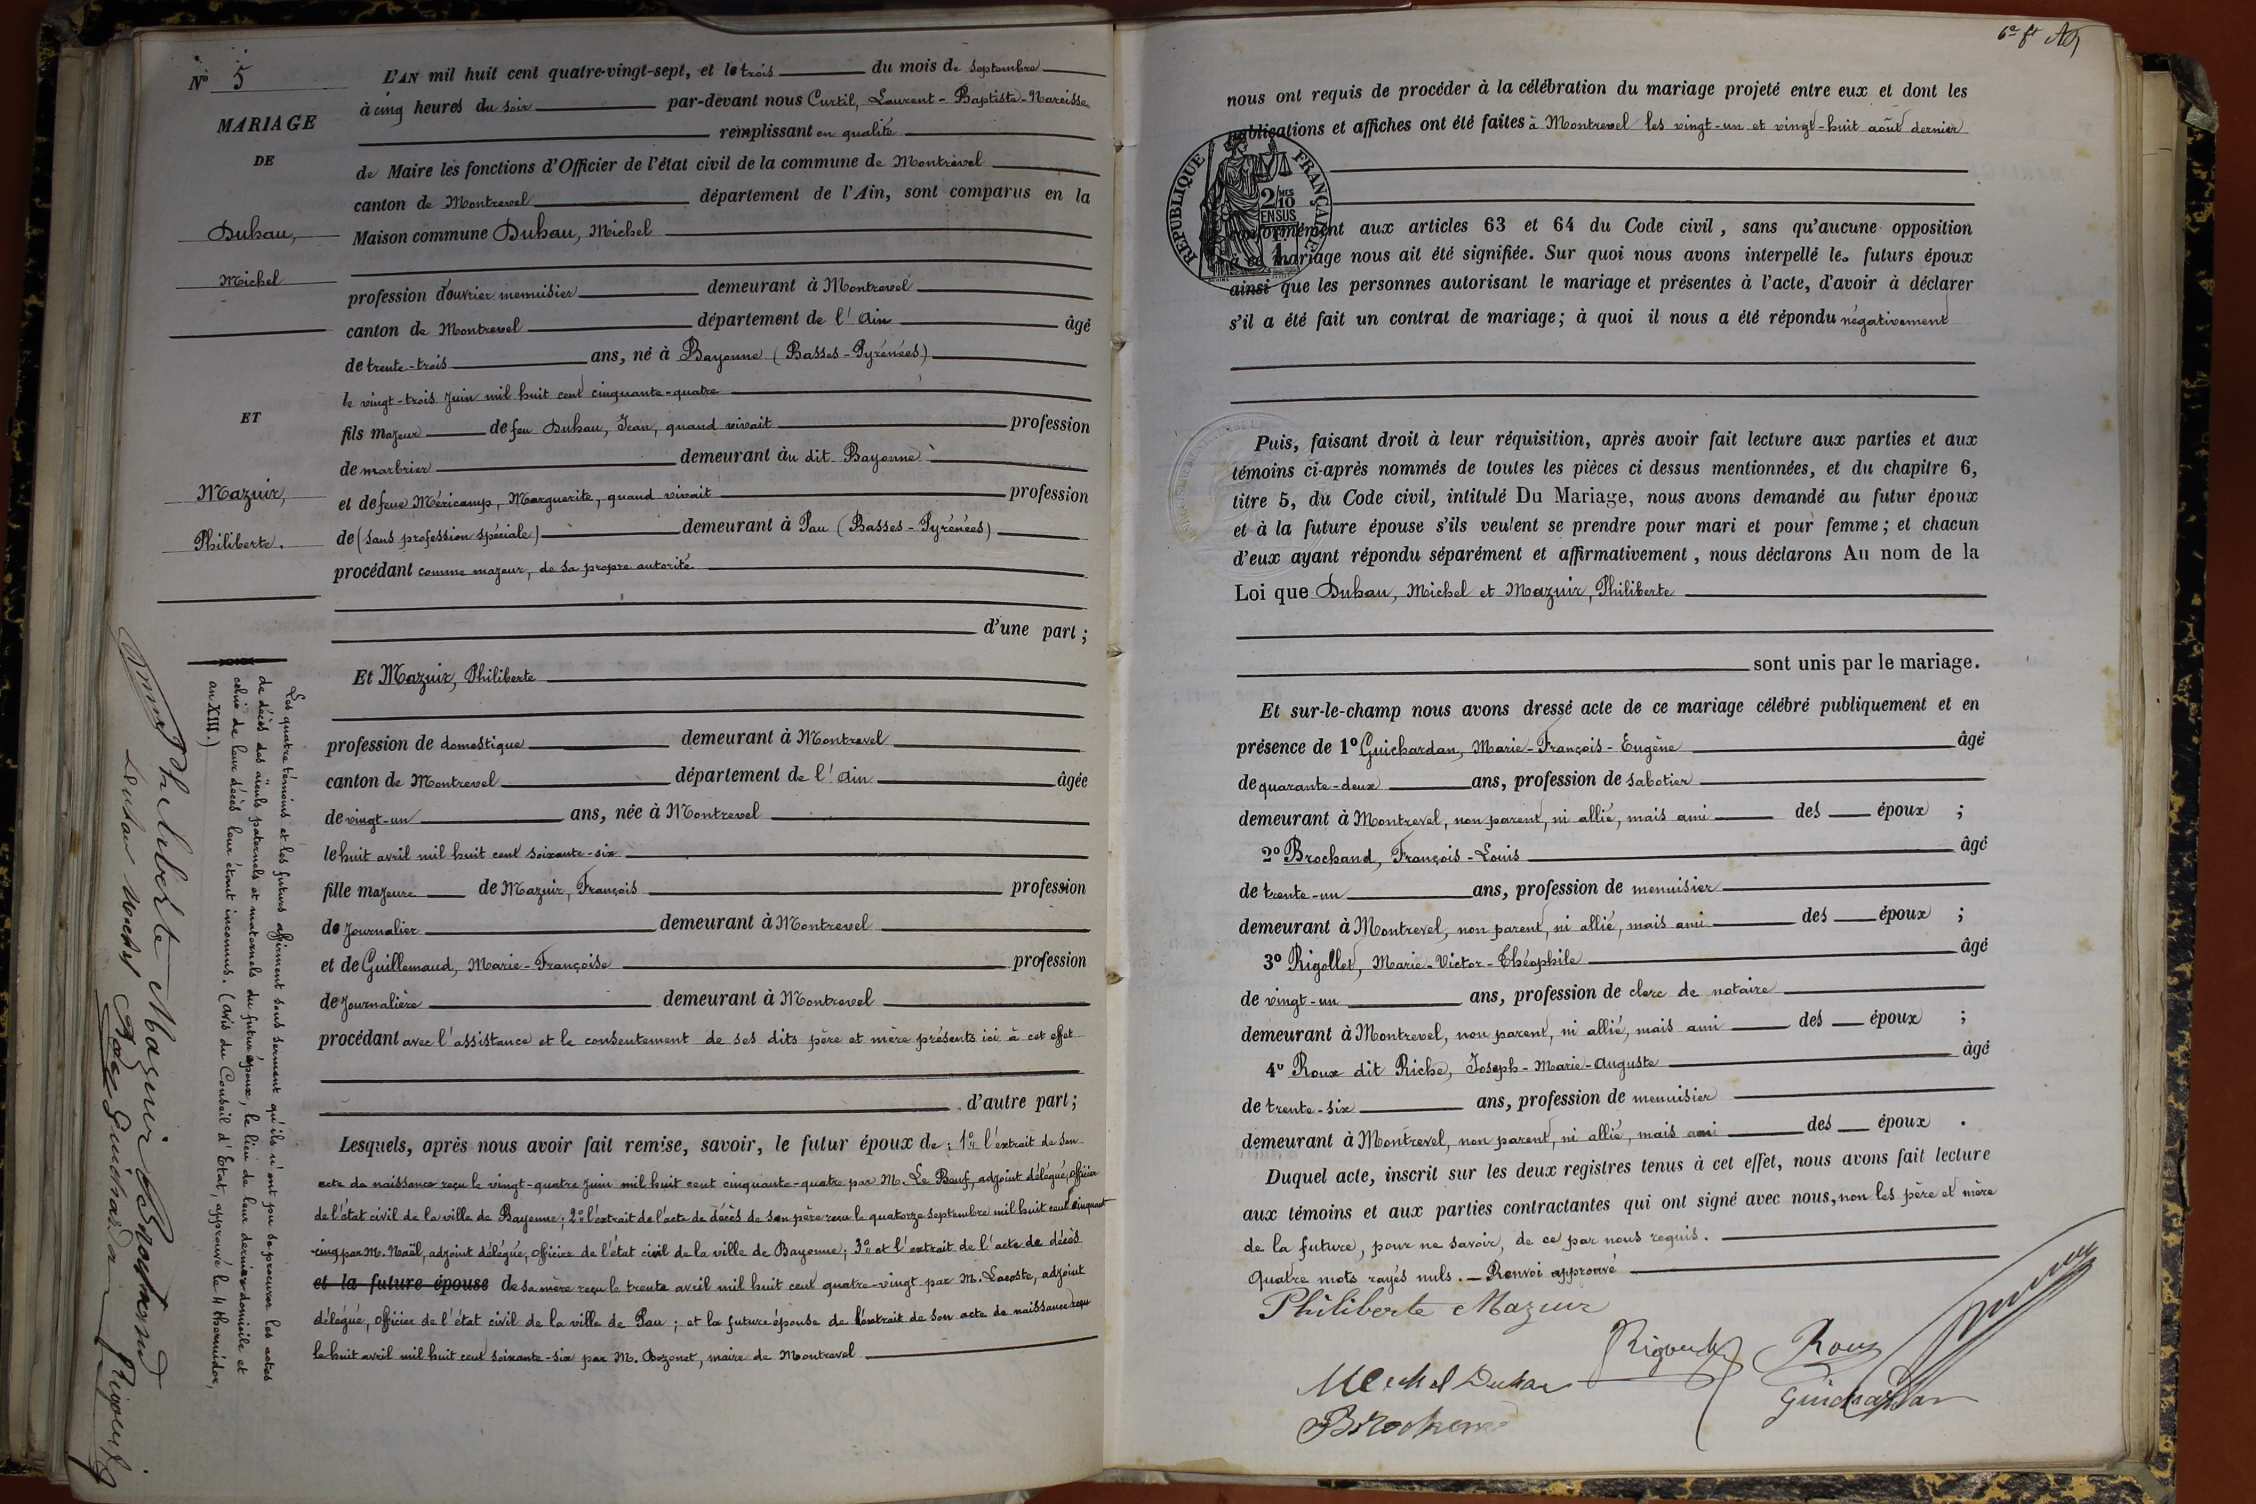 N° 5
MARIAGE
DE
Duhau,
Michel
ET
Mazuir,
Philiberte.
L'AN mil huit cent quatre-vingt-sept, et le trois du mois de septembre
à cinq heures du soir par-devant nous Curtil, Laurent-Baptiste-Narcisse
remplissant en qualité
de Maire les fonctions d'Officier de l'état civil de la commune de Montrevel
canton de Montrevel département de l'Ain, sont comparus en la
Maison commune Duhau, Michel
profession d'ouvrier menuisier demeurant à Montrevel
canton de Montrevel département de l'Ain âgé
de trente-trois ans, né à Bayonne (Basses-Pyrénées)
le vingt-trois Juin mil huit cent cinquante-quatre
fils majeur de feu Duhau, Jean, quand vivait profession
de marbrier demeurant au dit Bayonne
et de feue Méricamp, Marguerite, quand vivait profession
de (sans profession spéciale) demeurant à Pau (Basses-Pyrénées)
procédant comme majeur, de sa propre autorité
d'une part;
Et Mazuir, Philiberte
profession de domestique demeurant à Montrevel
canton de Montrevel département de l'Ain âgée
de vingt-un ans, née à Montrevel
le huit avril mil huit cent soixante-six
fille majeure de Mazuir, François profession
de Journalier demeurant à Montrevel
et de Guillemaud, Marie-Françoise profession
de Journalière demeurant à Montrevel
procédant avec l'assistance et le consentement de ses dits père et mère présents ici à cet effet
d'autre part;
Lesquels, après nous avoir fait remise, savoir, le futur époux de : 1° l'extrait de son
acte de naissance reçu le vingt-quatre Juin mil huit cent cinquante-quatre par M. Le Bœuf, adjoint délégué, officier
de l'état civil de la ville de Bayonne; 2° l'extrait de l'acte de décès de son père reçu le quatorze septembre mil huit cent cinquante
-cinq par M. Noël, adjoint délégué, officier de l'état civil de la ville de Bayonne; 3° et l'extrait de l'acte de décès
et la future épouse de sa mère reçu le trente avril mil huit cent quatre-vingt par M. Lacoste, adjoint
délégué, officier de l'état civil de la ville de Pau; et la future épouse de l'extrait de son acte de naissance reçu
le huit avril mil huit cent soixante-six par M. Bozonet, maire de Montrevel
Les quatre témoins et les futurs affirment sous serment qu'ils n'ont pu se procurer les actes
de décès des aïeuls paternels et maternels du futur époux, le lieu de leur dernier domicile et
celui de leur décès leur étant inconnus. (Avis du Conseil d'Etat, approuvé le 4 thermidor,
an XIII.)
Philiberte Mazuir Brochand
Duhau Michel Guichardan
6e ft
nous ont requis de procéder à la célébration du mariage projeté entre eux et dont les
publications et affiches ont été faites à Montrevel les vingt-un et vingt-huit août dernier
RÉPUBLIQUE FRANÇAISE
2/10 EN SUS
conformément aux articles 63 et 64 du Code civil, sans qu'aucune opposition
à ce mariage nous ait été signifiée. Sur quoi nous avons interpellé les futurs époux
ainsi que les personnes autorisant le mariage et présentes à l'acte, d'avoir à déclarer
s'il a été fait un contrat de mariage; à quoi il nous a été répondu négativement
Puis, faisant droit à leur réquisition, après avoir fait lecture aux parties et aux
témoins ci-après nommés de toutes les pièces ci dessus mentionnées, et du chapitre 6,
titre 5, du Code civil, intitulé Du Mariage, nous avons demandé au futur époux
et à la future épouse s'ils veulent se prendre pour mari et pour femme; et chacun
d'eux ayant répondu séparément et affirmativement, nous déclarons Au nom de la
Loi que Duhau, Michel et Mazuir, Philiberte
sont unis par le mariage.
Et sur-le-champ nous avons dressé acte de ce mariage célébré publiquement et en
présence de 1° Guichardan, Marie-François-Eugène âgé
de quarante-deux ans, profession de sabotier
demeurant à Montrevel, non parent, ni allié, mais ami des époux ;
2° Brochand, François-Louis âgé
de trente-un ans, profession de menuisier
demeurant à Montrevel, non parent, ni allié, mais ami des époux ;
3° Rigollet, Marie-Victor-Théophile âgé
de vingt-un ans, profession de clerc de notaire
demeurant à Montrevel, non parent, ni allié, mais ami des époux ;
4° Roux dit Riche, Joseph-Marie-Auguste âgé
de trente-six ans, profession de menuisier
demeurant à Montrevel, non parent, ni allié, mais ami des époux .
Duquel acte, inscrit sur les deux registres tenus à cet effet, nous avons fait lecture
aux témoins et aux parties contractantes qui ont signé avec nous, non les père et mère
de la future, pour ne savoir, de ce par nous requis.
Quatre mots rayés nuls. — Renvoi approuvé
Philiberte Mazuir
Roux
Michel Duhau
Guichardan
Brochand